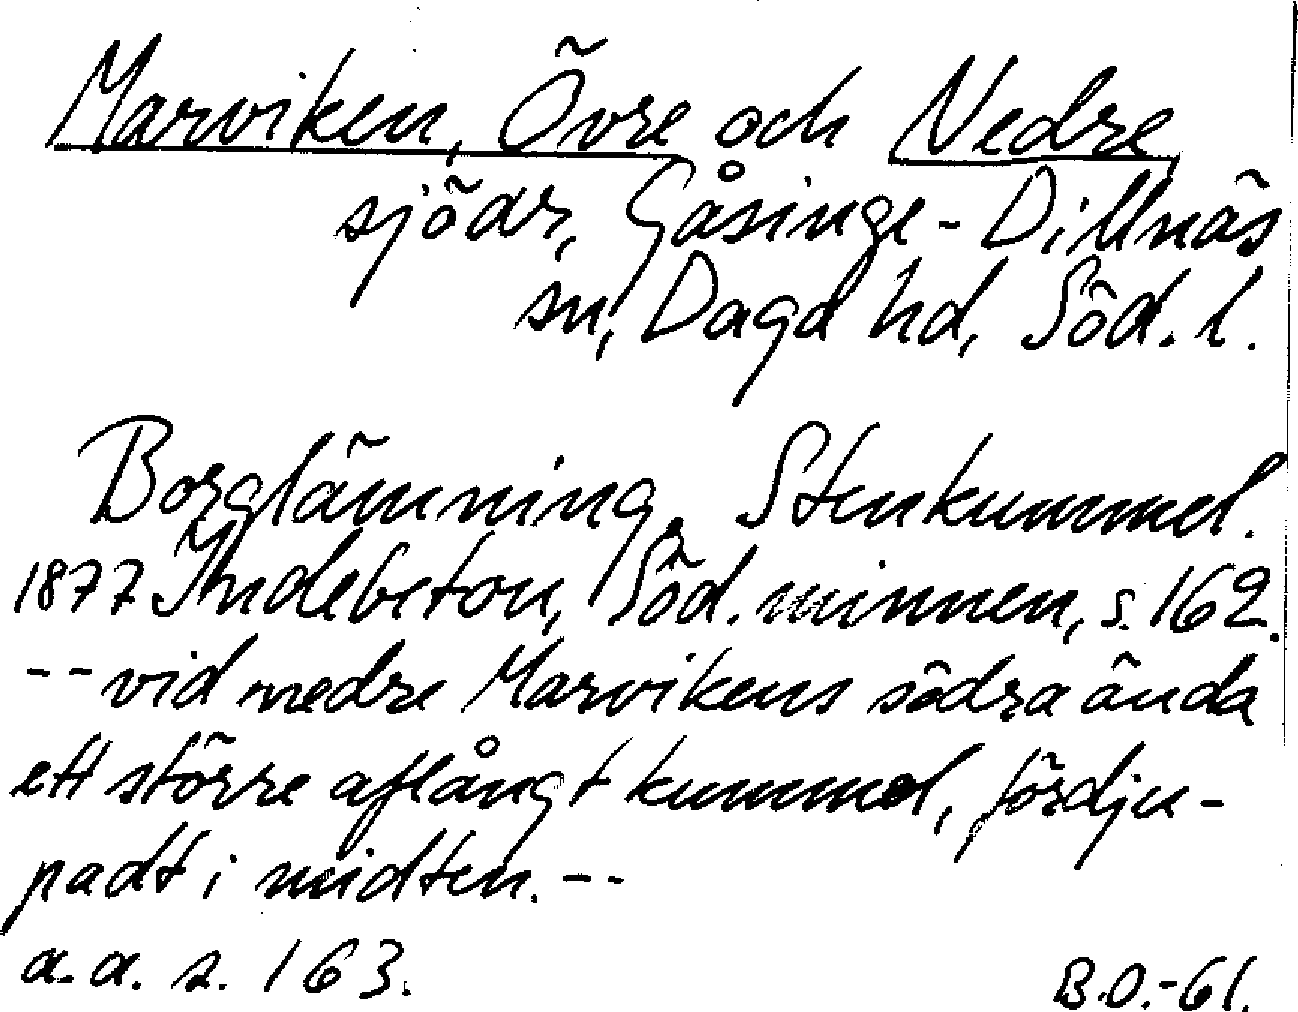 Marviken, Övre och Nedre
sjöar, Gåsinge-Dillnäs
sn, Daga hd, Söd. l.
Borglämning. Stenkummel.
1877 Indebetou, Söd. minnen, s. 162.
-- vid nedre Marvikens södra ända
ett större aflångt kummel, fördju-
padt i midten. --
a. a. s. 163.
B.O.-61.